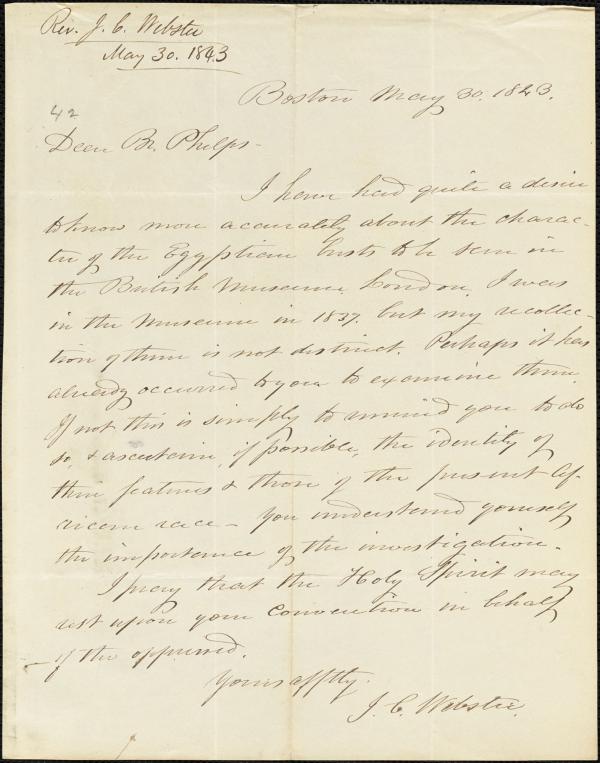 Rev. J. C. Webster
May 30. 1843
Boston May 30. 1843.
42
Dear Br. Phelps-
I have had quite a desire
to know more accurately about the charac-
ter of the Egyptian busts to be seen in
the British Museum London. I was
in the Museum in 1837. but my recollec-
tion of them is not distinct. Perhaps it has
already occurred to you to examine them.
If not this is simply to remind you to do
so, & ascertain, if possible, the identity of
their features & those of the present Af-
rican race - You understand yourself
the importance of the investigation.
I pray that the Holy Spirit may
rest upon your Convention in behalf
of the oppressed.
Yours afftly.
J. C. Webster.